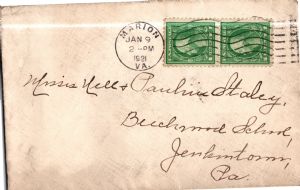 MARION
JAN 9
2-PM
1921
VA.
Misses Nell & Pauline Staley,
Beechwood School,
Jenkintown,
Pa.